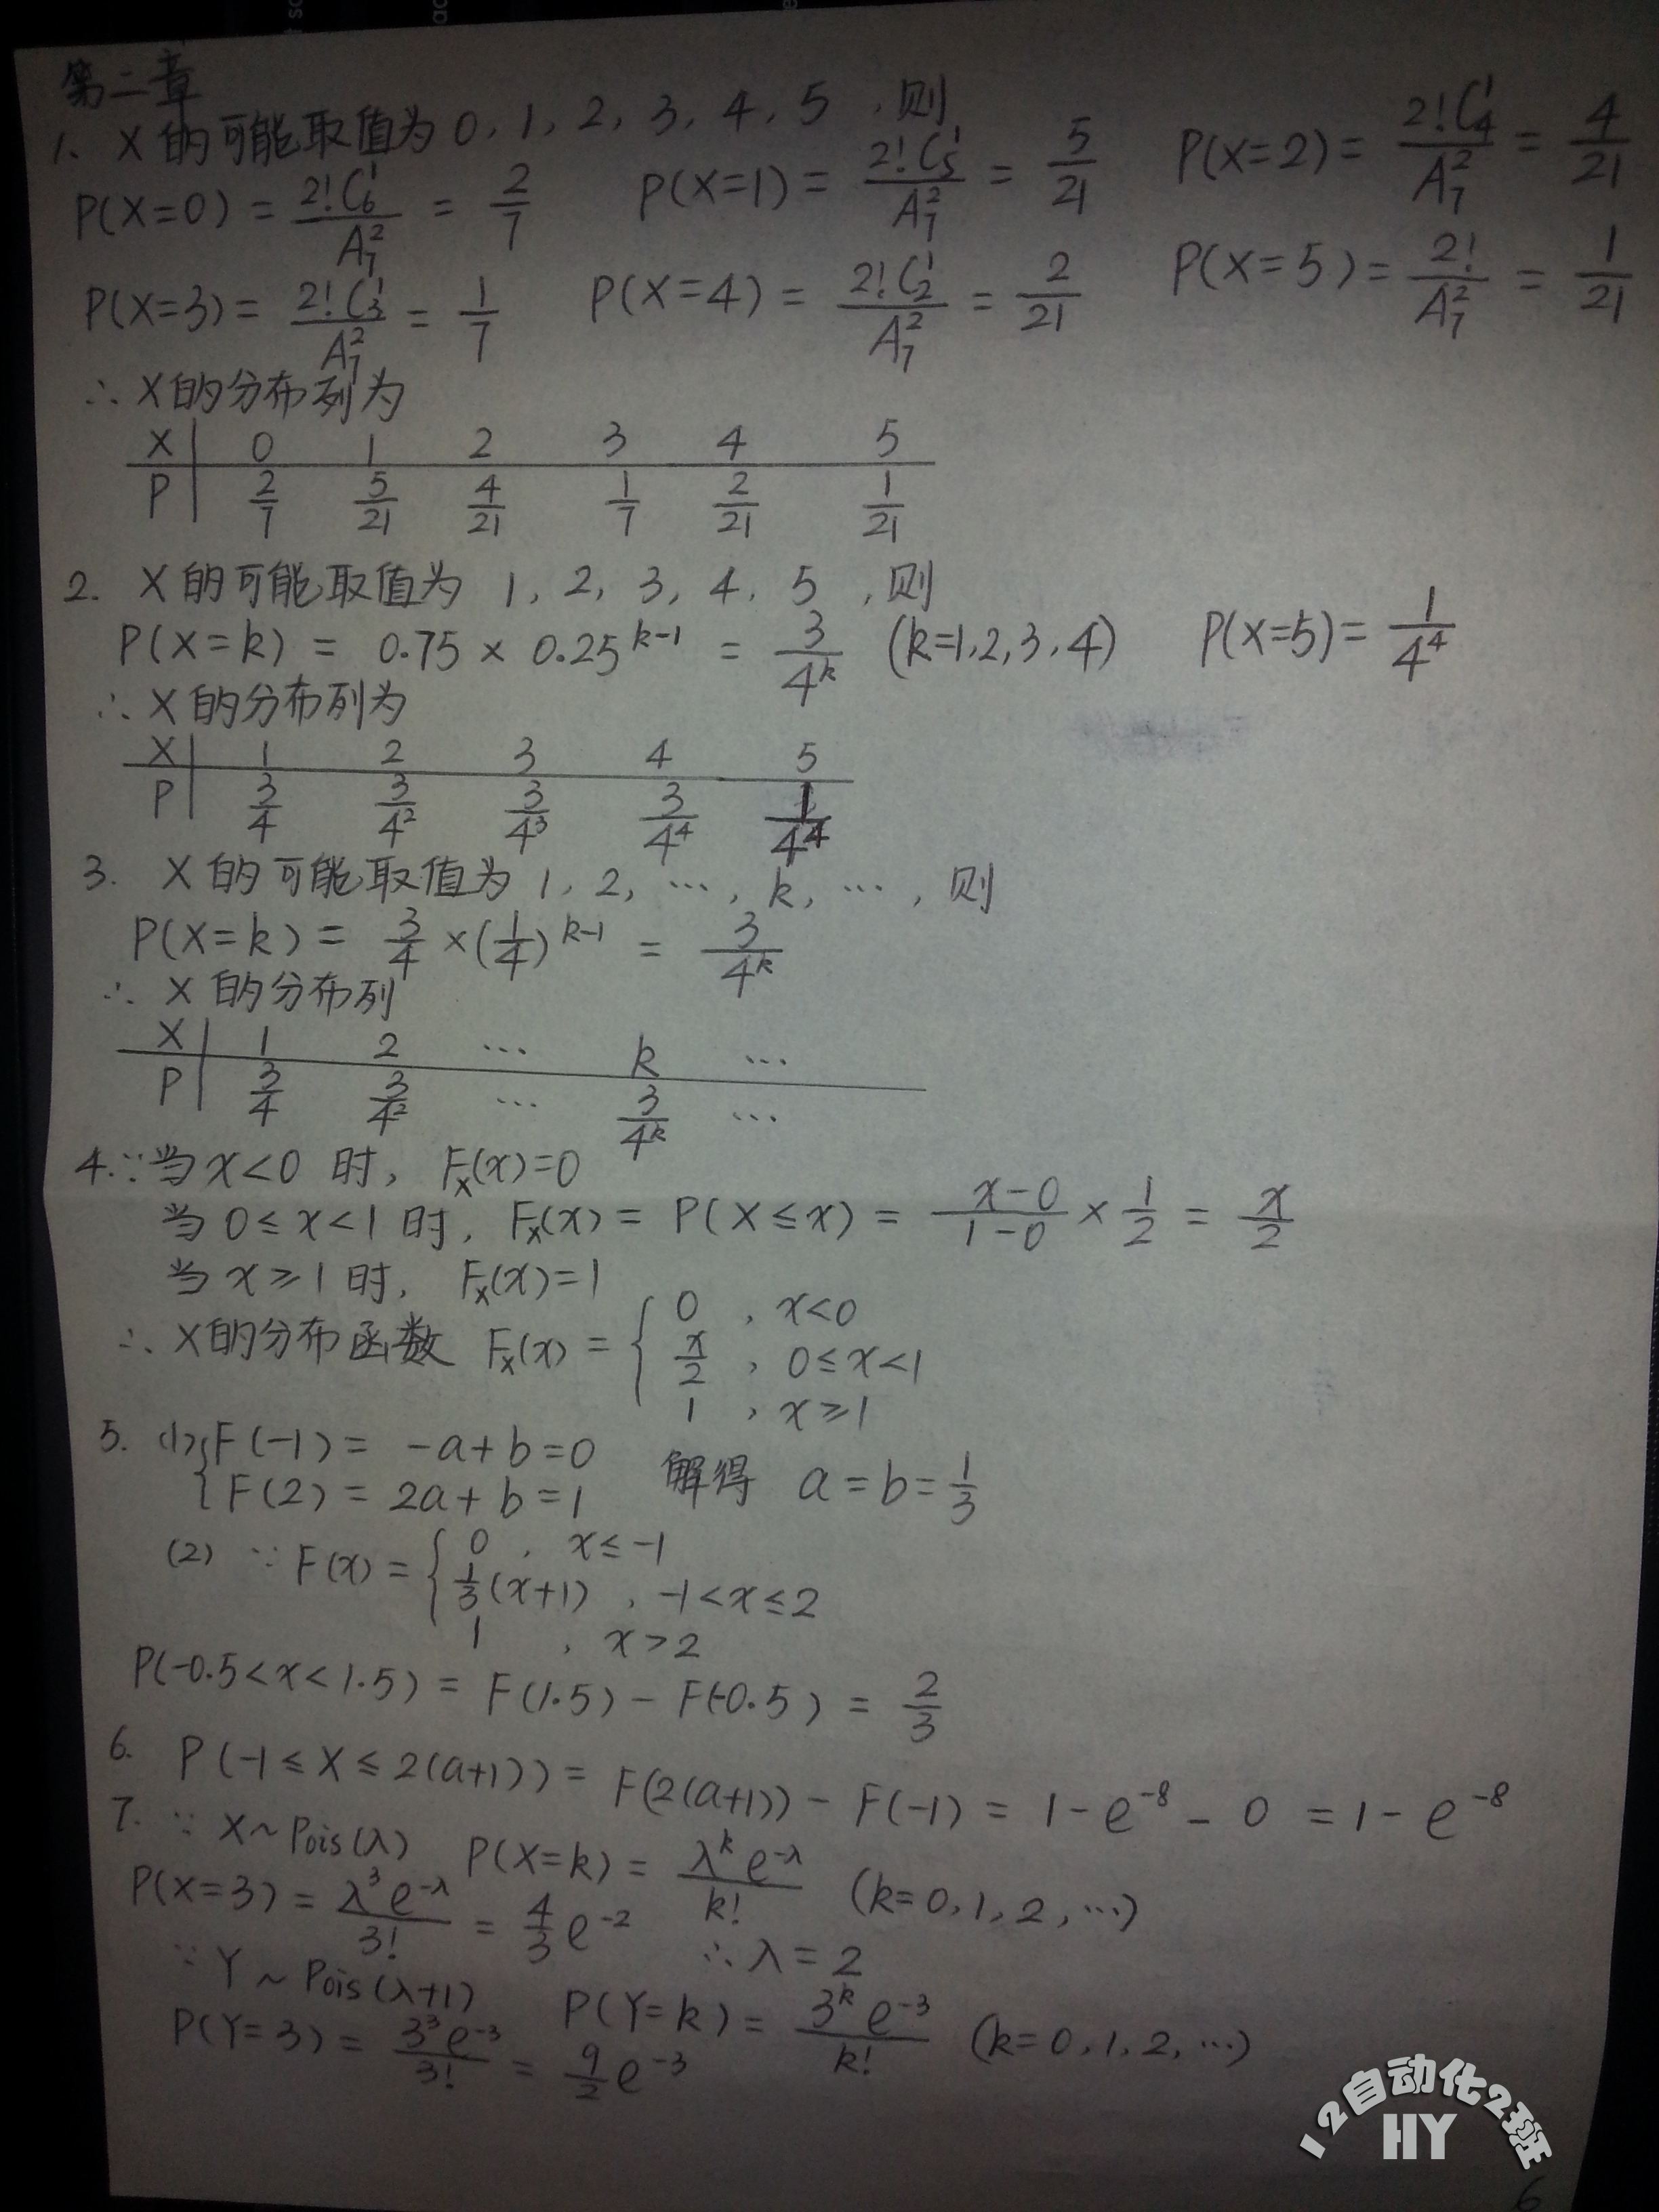 第二章
1. X的可能取值为0,1,2,3,4,5,则
P(X=0)=2!C₆¹/A₇²=2/7 P(X=1)=2!C₅¹/A₇²=5/21 P(X=2)=2!C₄¹/A₇²=4/21
P(X=3)=2!C₃¹/A₇²=1/7 P(X=4)=2!C₂¹/A₇²=2/21 P(X=5)=2!/A₇²=1/21
∴X的分布列为
X 0 1 2 3 4 5
P 2/7 5/21 4/21 1/7 2/21 1/21
2. X的可能取值为 1,2,3,4,5,则
P(X=k)=0.75×0.25^(k-1)=3/4^k (k=1,2,3,4) P(X=5)=1/4⁴
∴X的分布列为
X 1 2 3 4 5
P 3/4 3/4² 3/4³ 3/4⁴ 1/4⁴
3. X的可能取值为1,2,…,k,…,则
P(X=k)=3/4×(1/4)^(k-1)=3/4^k
∴X的分布列
X 1 2 … k …
P 3/4 3/4² … 3/4^k …
4.∵当x<0时,Fₓ(x)=0
当0≤x<1时,Fₓ(x)=P(X≤x)=(x-0)/(1-0)×1/2=x/2
当x≥1时,Fₓ(x)=1
∴X的分布函数 Fₓ(x)={0,x<0
x/2,0≤x<1
1,x≥1
5. (1){F(-1)=-a+b=0
F(2)=2a+b=1 解得 a=b=1/3
(2)∵F(x)={0,x≤-1
1/3(x+1),-1<x≤2
1,x>2
P(-0.5<x<1.5)=F(1.5)-F(-0.5)=2/3
6. P(-1≤X≤2(a+1))=F(2(a+1))-F(-1)=1-e⁻⁸-0=1-e⁻⁸
7.∵X~Pois(λ) P(X=k)=λ^k e^(-λ)/k! (k=0,1,2,…)
P(X=3)=λ³e^(-λ)/3!=4/3 e⁻² ∴λ=2
∵Y~Pois(λ+1) P(Y=k)=3^k e⁻³/k! (k=0,1,2,…)
P(Y=3)=3³e⁻³/3!=9/2 e⁻³
12自动化2班
HY
6